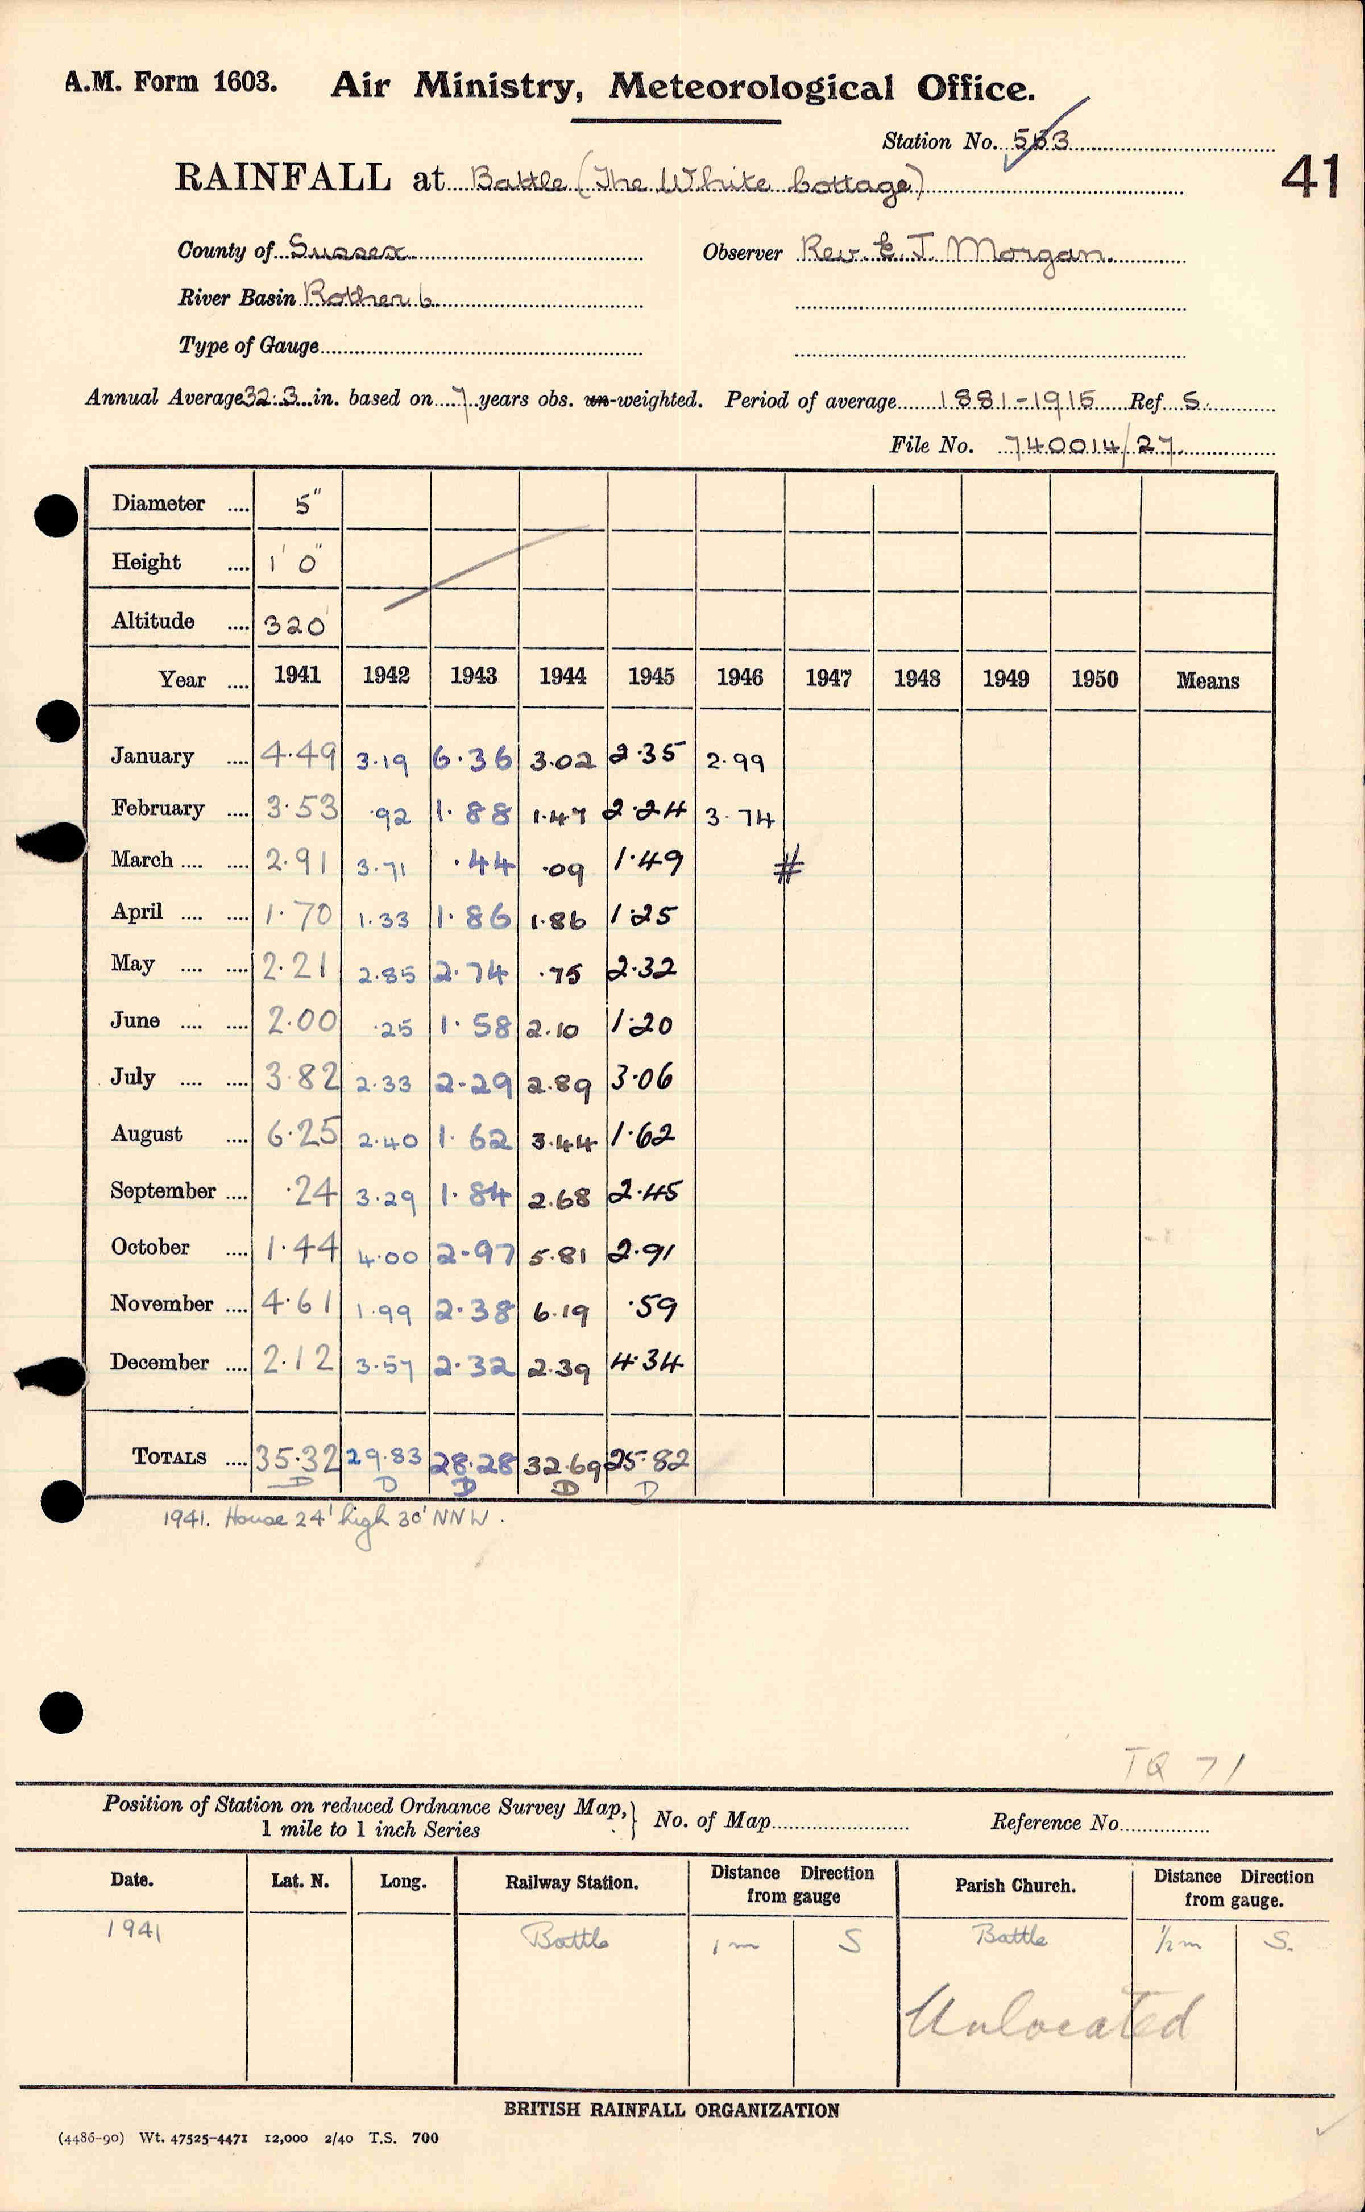 A.M. Form 1603. Air Ministry, Meteorological Office.
Station No. 563
41
RAINFALL at Battle (The White Cottage)
County of Sussex Observer Rev. E. J. Morgan.
River Basin Rother 6
Type of Gauge
Annual Average 32.3 in. based on 7 years obs. un-weighted. Period of average 1881-1915 Ref. S.
File No. 740014/27.
Diameter .... 5"
Height .... 1' 0"
Altitude .... 320'
Year .... 1941 1942 1943 1944 1945 1946 1947 1948 1949 1950 Means
January .... 4.49 3.19 6.36 3.02 2.35 2.99
February .... 3.53 .92 1.88 1.47 2.24 3.74
March .... .... 2.91 3.71 .44 .09 1.49 #
April .... .... 1.70 1.33 1.86 1.86 1.25
May .... .... 2.21 2.85 2.74 .75 2.32
June .... .... 2.00 .25 1.58 2.10 1.20
July .... .... 3.82 2.33 2.29 2.89 3.06
August .... 6.25 2.40 1.62 3.44 1.62
September .... .24 3.29 1.84 2.68 2.45
October .... 1.44 4.00 2.97 5.81 2.91
November .... 4.61 1.99 2.38 6.19 .59
December .... 2.12 3.57 2.32 2.39 4.34
TOTALS .... 35.32 29.83 28.28 32.69 25.82
D D D D D
1941. House 24' high 30' NNW.
TQ 71
Position of Station on reduced Ordnance Survey Map,} No. of Map Reference No.
1 mile to 1 inch Series
Date. Lat. N. Long. Railway Station. Distance Direction from gauge Parish Church. Distance Direction from gauge.
1941 Battle 1 m S Battle 1/2 m S.
Unlocated
BRITISH RAINFALL ORGANIZATION
(4486-90) Wt. 47525-4471 12,000 2/40 T.S. 700